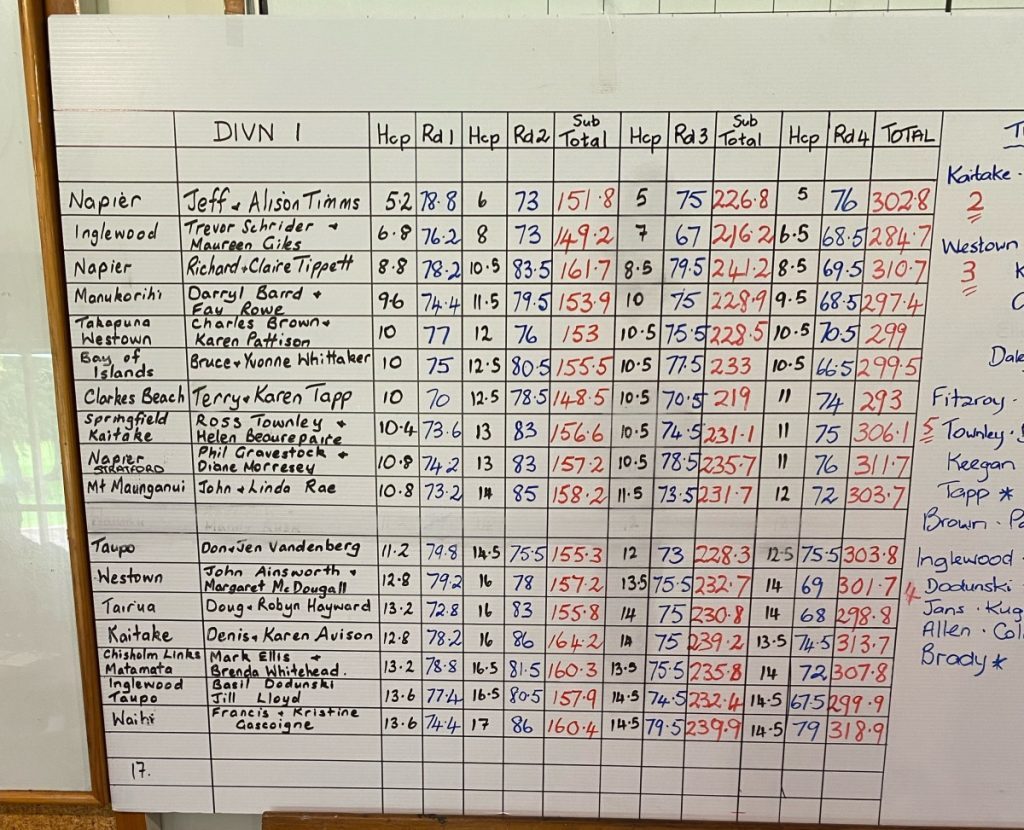 DIVN 1 Hcp Rd 1 Hcp Rd 2 Sub Total Hcp Rd 3 Sub Total Hcp Rd 4 TOTAL
Napier Jeff & Alison Timms 5.2 78.8 6 73 151.8 5 75 226.8 5 76 302.8
Inglewood Trevor Schrider & Maureen Giles 6.8 76.2 8 73 149.2 7 67 216.2 6.5 68.5 284.7
Napier Richard & Claire Tippett 8.8 78.2 10.5 83.5 161.7 8.5 79.5 241.2 8.5 69.5 310.7
Manukorihi Darryl Barrd & Fay Rowe 9.6 74.4 11.5 79.5 153.9 10 75 228.9 9.5 68.5 297.4
Takapuna Westown Charles Brown & Karen Pattison 10 77 12 76 153 10.5 75.5 228.5 10.5 70.5 299
Bay of Islands Bruce & Yvonne Whittaker 10 75 12.5 80.5 155.5 10.5 77.5 233 10.5 66.5 299.5
Clarkes Beach Terry & Karen Tapp 10 70 12.5 78.5 148.5 10.5 70.5 219 11 74 293
Springfield Kaitake Ross Townley & Helen Beaurepaire 10.4 73.6 13 83 156.6 10.5 74.5 231.1 11 75 306.1
Napier STRATFORD Phil Gravestock & Diane Morresey 10.8 74.2 13 83 157.2 10.5 78.5 235.7 11 76 311.7
Mt Maunganui John & Linda Rae 10.8 73.2 14 85 158.2 11.5 73.5 231.7 12 72 303.7
Taupo Don & Jen Vandenberg 11.2 79.8 14.5 75.5 155.3 12 73 228.3 12.5 75.5 303.8
Westown John Ainsworth & Margaret McDougall 12.8 79.2 16 78 157.2 13.5 75.5 232.7 14 69 301.7
Tairua Doug & Robyn Hayward 13.2 72.8 16 83 155.8 14 75 230.8 14 68 298.8
Kaitake Denis & Karen Avison 12.8 78.2 16 86 164.2 14 75 239.2 13.5 74.5 313.7
Chisholm Links Matamata Mark Ellis & Brenda Whitehead. 13.2 78.8 16.5 81.5 160.3 13.5 75.5 235.8 14 72 307.8
Inglewood Taupo Basil Dodunski Jill Lloyd 13.6 77.4 16.5 80.5 157.9 14.5 74.5 232.4 14.5 67.5 299.9
Waihi Francis & Kristine Gascoigne 13.6 74.4 17 86 160.4 14.5 79.5 239.9 14.5 79 318.9
17.
Kaitake ·
2
Westown
3
Dale
Fitzroy ·
5 Townley ·
Keegan
Tapp *
Brown ·
Inglewood
4 Dodunski
Jans ·
Allen ·
Brady *